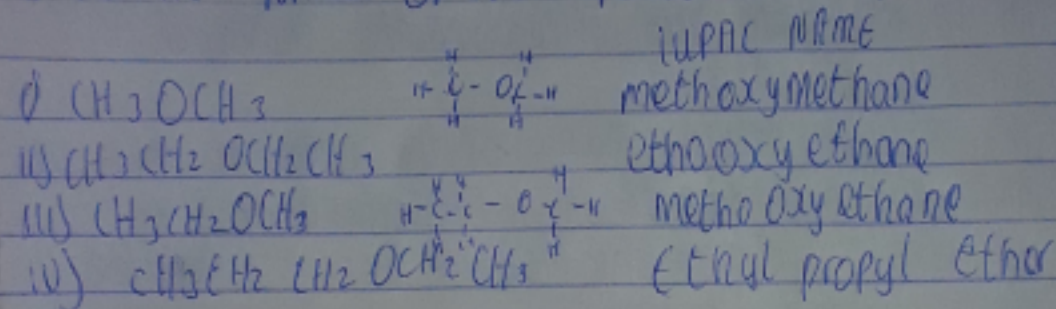 IUPAC NAME
i) CH3OCH3 H-C-OC-H methoxymethane
ii) CH3CH2 OCH2CH3 ethooxy ethane
iii) CH3CH2OCH3 H-C-C-O C-H methooxy ethane
iv) CH3CH2 CH2 OCH2CH3 Ethyl propyl ether